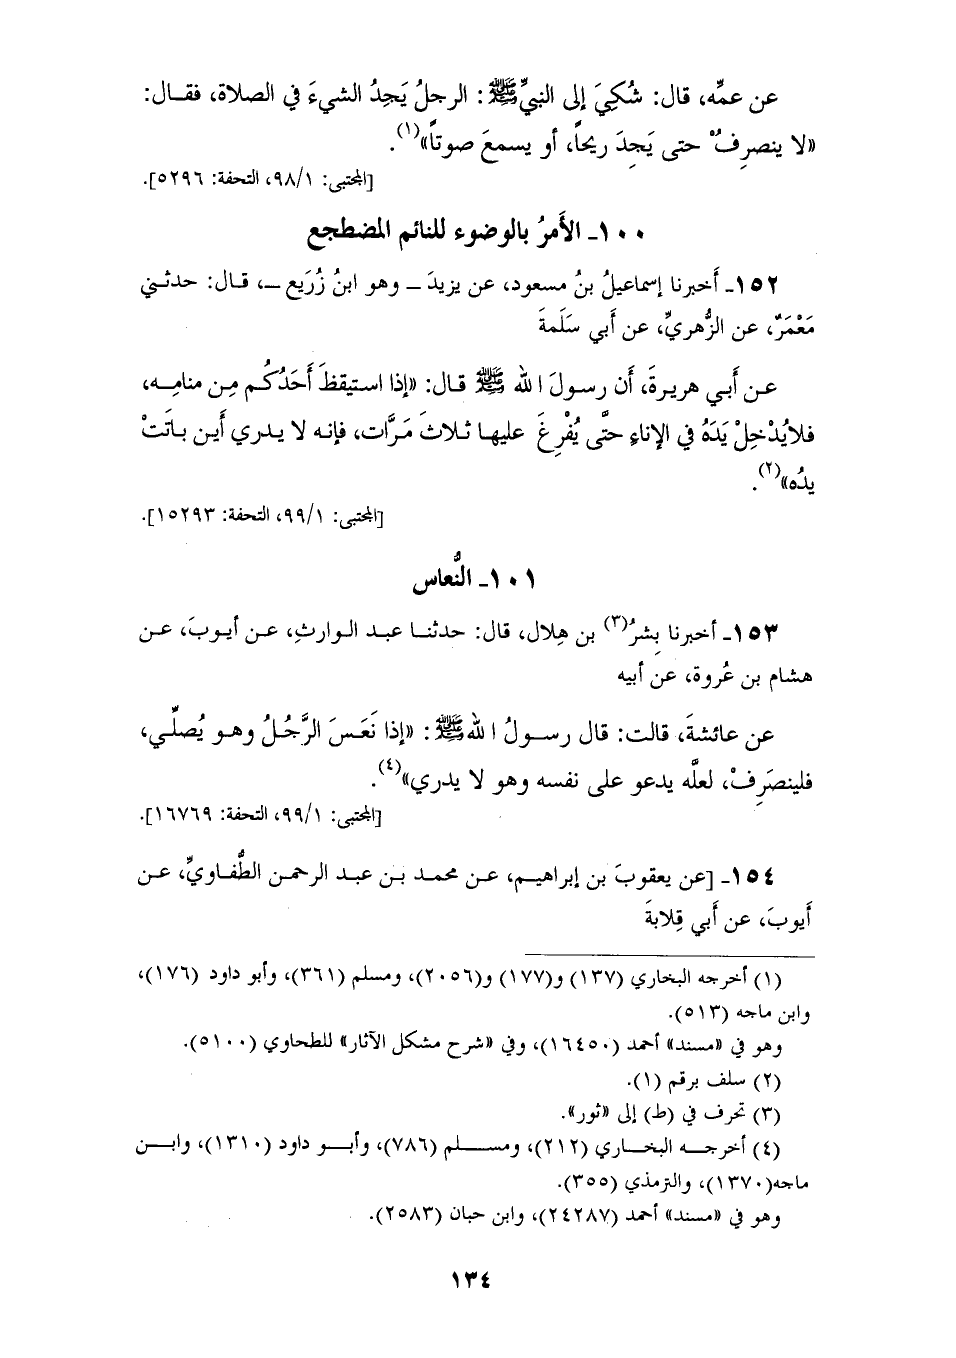 عن عمِّه، قال: شُكِيَ إلى النبيِّ ﷺ: الرجلُ يَجِدُ الشيءَ في الصلاة، فقـال:
«لا ينصرِفْ حتى يَجِدَ ريحاً، أو يسمعَ صوتاً»(١).
[المجتبى: ٩٨/١، التحفة: ٥٢٩٦].
١٠٠ـ الأَمرُ بالوضوء للنائم المضطجع
١٥٢ـ أَخبرنا إسماعيلُ بنُ مسعود، عن يزيدَ ـ وهو ابنُ زُرَيع ـ، قـال: حدثـني
مَعْمَرٌ، عن الزُّهريِّ، عن أَبي سَلَمةَ
عـن أَبـي هريـرةَ، أَن رسـولَ الله ﷺ قـال: «إذا استيقـظَ أَحَدُكُـم مِـن منامِـه،
فلا يُدْخِلْ يَدَهُ في الإناءِ حتَّى يُفْرِغَ عليهـا ثـلاثَ مَـرَّات، فإنـه لا يـدري أَيـن بـاتَتْ
يدُه»(٢).
[المجتبى: ٩٩/١، التحفة: ١٥٢٩٣].
١٠١ـ النُّعاس
١٥٣ـ أَخبرنا بِشرُ(٣) بن هِلال، قال: حدثنـا عبـد الـوارثِ، عـن أيـوبَ، عـن
هشام بن عُروة، عن أبيه
عن عائشةَ، قالت: قال رسـولُ الله ﷺ: «إذا نَعَسَ الرَّجُـلُ وهـو يُصلِّـي،
فلينصَرِفْ، لعلَّه يدعو على نفسه وهو لا يدري»(٤).
[المجتبى: ٩٩/١، التحفة: ١٦٧٦٩].
١٥٤ـ [عن يعقوبَ بن إبراهيـم، عـن محمـد بـن عبـد الرحمـن الطُّفـاويِّ، عـن
أَيوبَ، عن أَبي قِلابةَ
(١) أخرجه البخاري (١٣٧) و(١٧٧) و(٢٠٥٦)، ومسلم (٣٦١)، وأبو داود (١٧٦)،
وابن ماجه (٥١٣).
وهو في «مسند» أحمد (١٦٤٥٠)، وفي «شرح مشكل الآثار» للطحاوي (٥١٠٠).
(٢) سلف برقم (١).
(٣) تحرف في (ط) إلى «ثور».
(٤) أخرجـه البخـاري (٢١٢)، ومسـلم (٧٨٦)، وأبـو داود (١٣١٠)، وابـن
ماجه(١٣٧٠)، والترمذي (٣٥٥).
وهو في «مسند» أحمد (٢٤٢٨٧)، وابن حبان (٢٥٨٣).
١٣٤